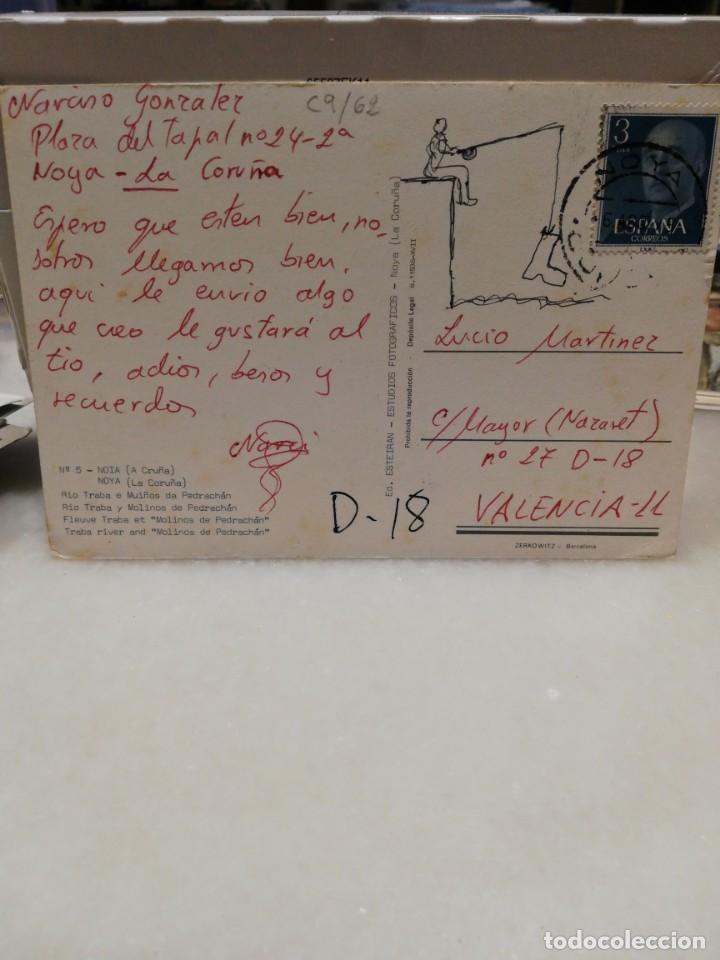 Narciso Gonzalez
Plaza del Tapal nº 24-2ª
Noya - La Coruña
C9/62
Espero que esten bien, no-
sotros llegamos bien,
aqui le envio algo
que creo le gustará al
tio, adios, besos y
recuerdos
Narci
Nº 5 - NOIA (A Cruña)
NOYA (La Coruña)
Rio Traba e Muiños da Pedrachán
Rio Traba y Molinos de Pedrachán
Fleuve Traba et "Molinos de Pedrachán"
Traba river and "Molinos de Pedrachán"
D-18
Ed. ESTEIRAN - ESTUDIOS FOTOGRAFICOS - Noya (La Coruña)
Prohibida la reproducción - Depósito Legal
3
PTAS
ESPAÑA
CORREOS
NOYA
Lucio Martinez
C/ Mayor (Nazaret)
nº 27 D-18
VALENCIA-11
ZERKOWITZ - Barcelona
todocoleccion
todocoleccion.net